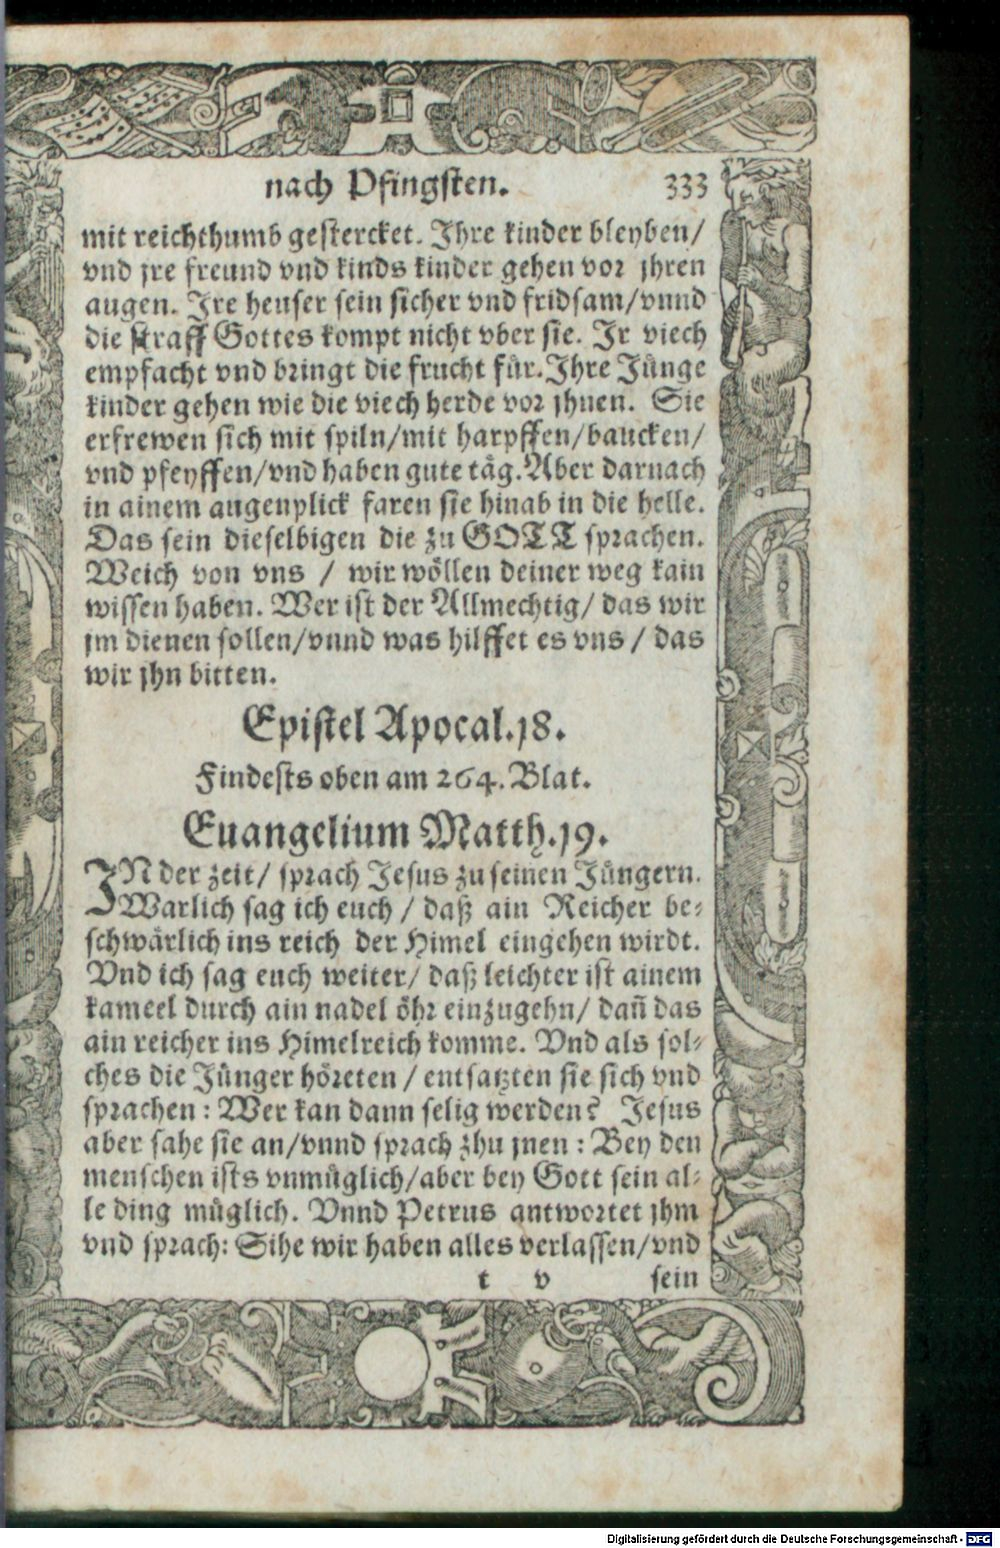 nach Pfingsten. 333
mit reichthumb gestercket. Ihre kinder bleyben/
vnd jre freund vnd kinds kinder gehen vor jhren
augen. Ire heuser sein sicher vnd fridsam/vnnd
die straff Gottes kompt nicht vber sie. Ir viech
empfacht vnd bringt die frucht für. Ihre Jünge
kinder gehen wie die viech herde vor jhnen. Sie
erfrewen sich mit spiln/mit harpffen/baucken/
vnd pfeyffen/vnd haben gute täg. Aber darnach
in ainem augenplick faren sie hinab in die helle.
Das sein dieselbigen die zu GOTT sprachen.
Weich von vns / wir wöllen deiner weg kain
wissen haben. Wer ist der Allmechtig/ das wir
jm dienen sollen/vnnd was hilffet es vns / das
wir jhn bitten.
Epistel Apocal.18.
Findests oben am 264. Blat.
Euangelium Matth.19.
IN der zeit/ sprach Jesus zu seinen Jüngern.
Warlich sag ich euch / daß ain Reicher be⸗
schwärlich ins reich der Himel eingehen wirdt.
Vnd ich sag euch weiter/ daß leichter ist ainem
kameel durch ain nadel öhr einzugehn/ dañ das
ain reicher ins Himelreich komme. Vnd als sol⸗
ches die Jünger höreten / entsatzten sie sich vnd
sprachen : Wer kan dann selig werden? Jesus
aber sahe sie an/vnnd sprach zhu jnen : Bey den
menschen ists vnmüglich/aber bey Gott sein al⸗
le ding müglich. Vnnd Petrus antwortet jhm
vnd sprach: Sihe wir haben alles verlassen/vnd
t v sein
Digitalisierung gefördert durch die Deutsche Forschungsgemeinschaft - DFG